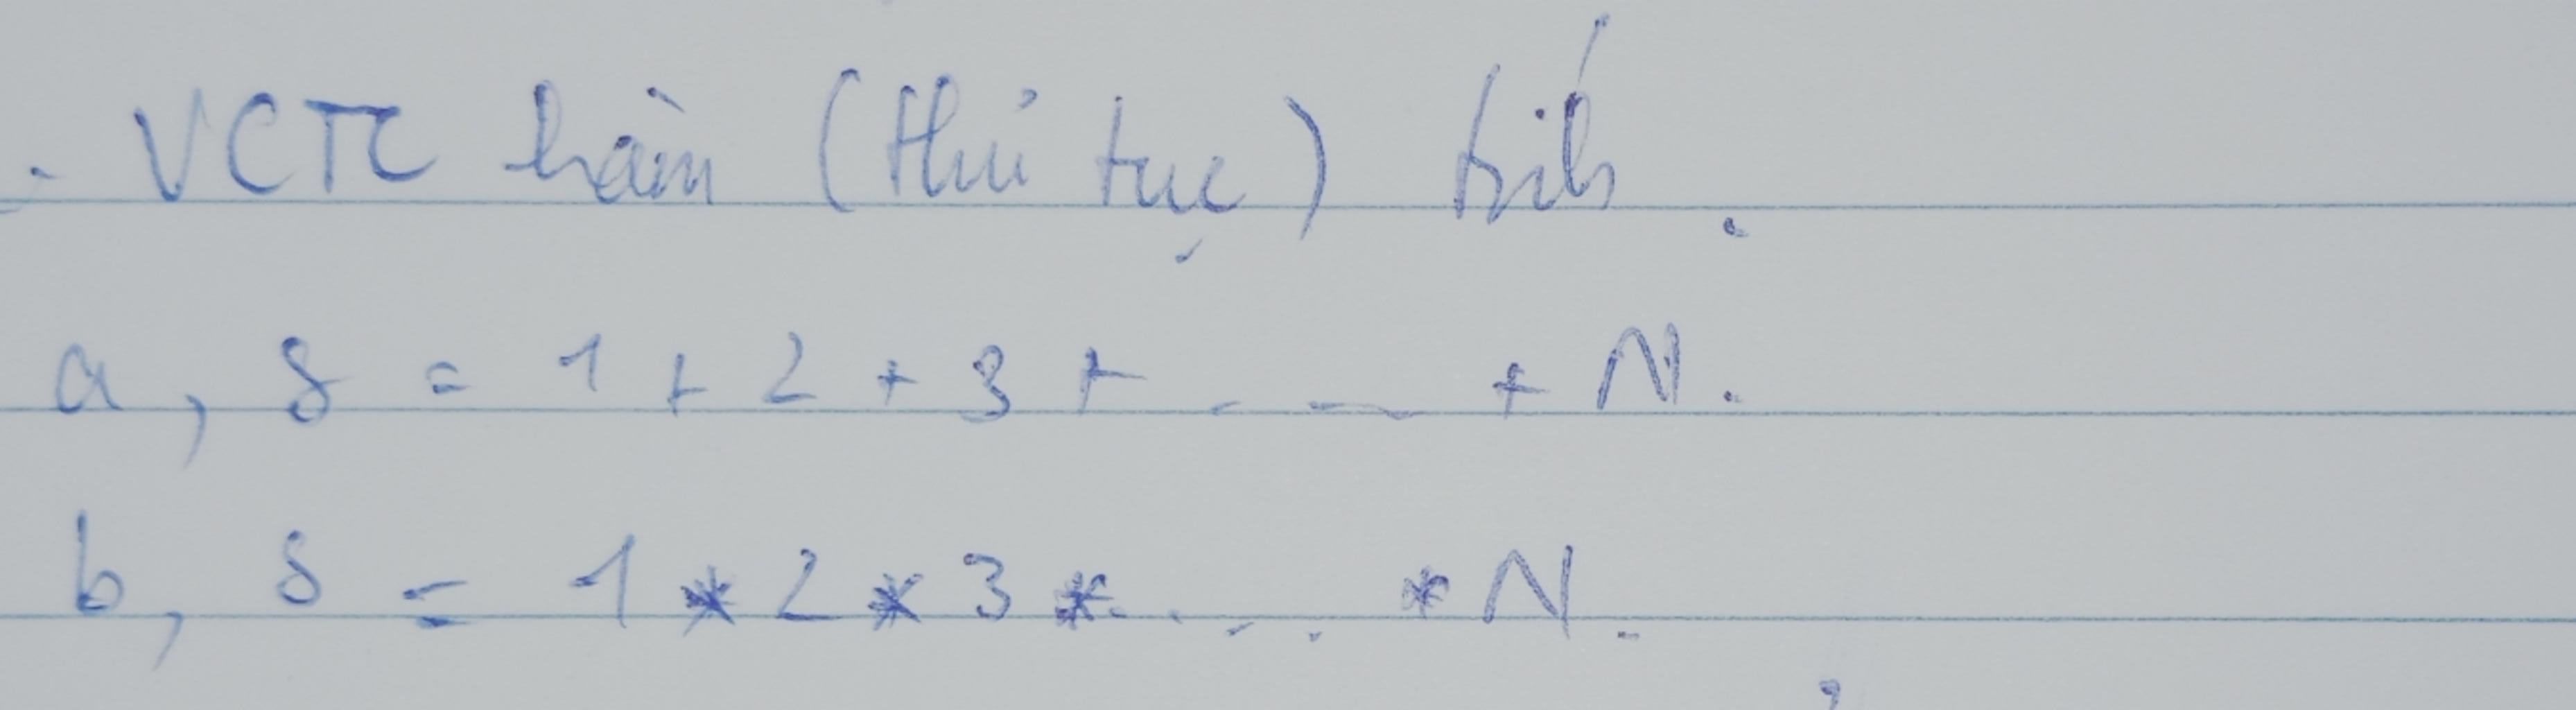 . VCTC hàm (thủ tục) tính.
a, S = 1 + 2 + 3 + ... + N.
b, S = 1 * 2 * 3 * .... * N.